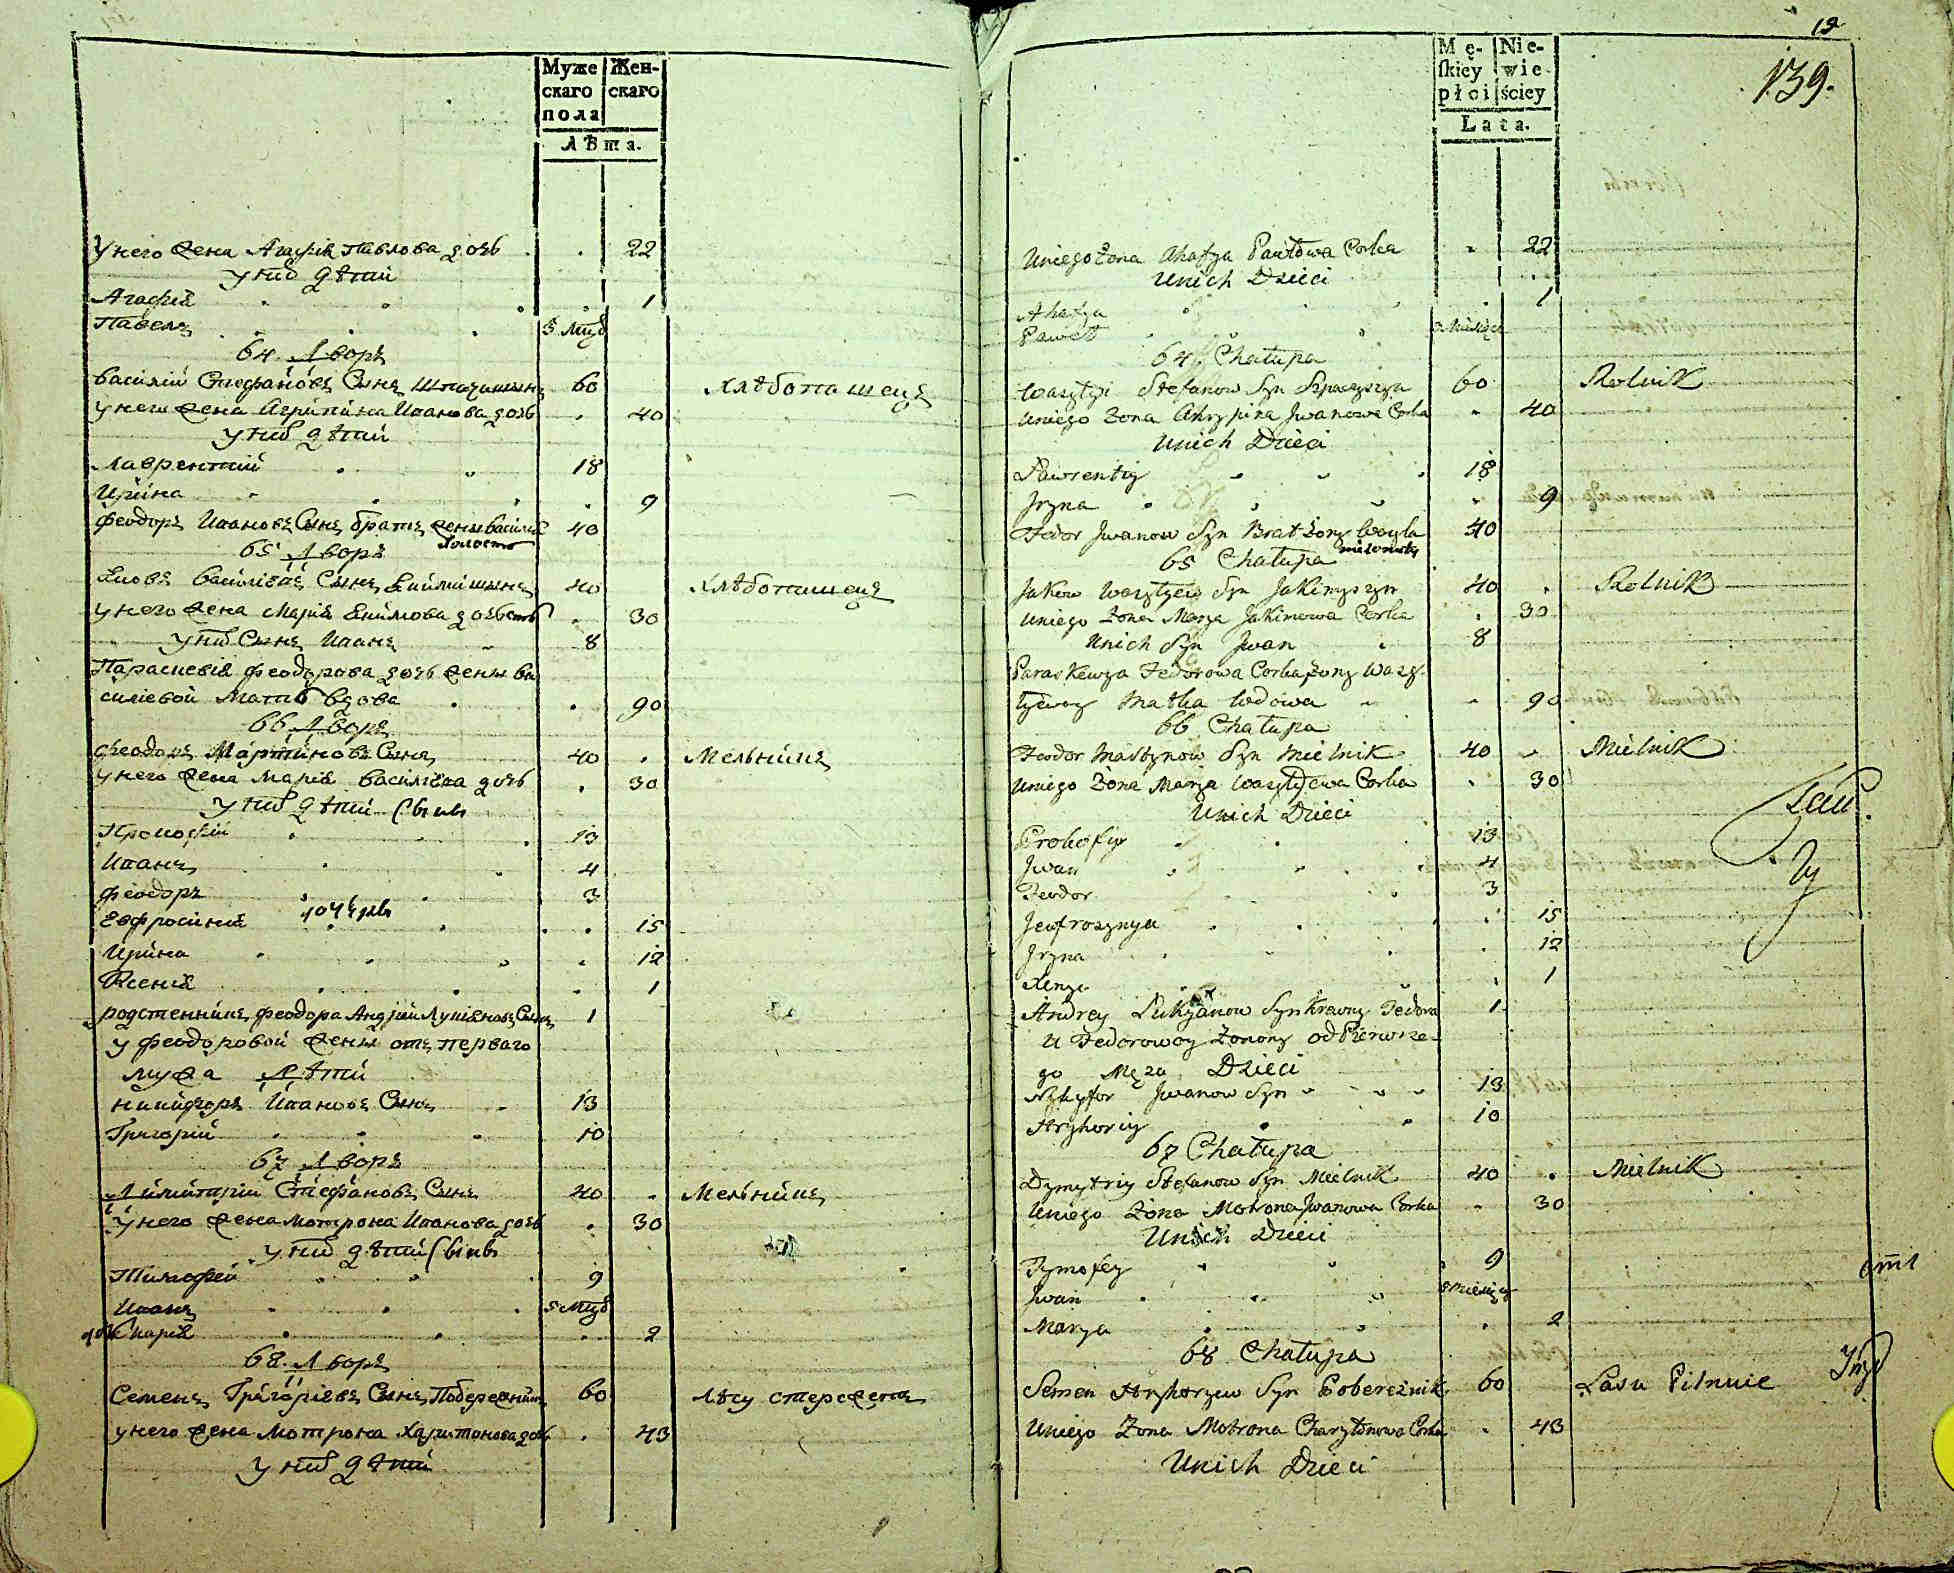 Муже
скаго
пола
Жен-
скаго
Лѣта.
У него жена Агафия Павлова дочь 22
у них дѣти
Агафия 1
Павелъ 3 мцъ
64 Дворъ
Василий Стефановъ Сынъ Шпачишинъ 60 хлѣбопашецъ
у него жена Агрипина Иванова дочь 40
у них дѣти
Лаврентий 18
Ирина 9
Феодоръ Ивановъ Сынъ братъ жены 40
холостъ
65 Дворъ
Яковъ Василиевъ Сынъ 40 хлѣбопашецъ
у него жена Мария Якимова дочь 30
у них Сынъ Иванъ 8
Параскевия Феодорова дочь жены Ва
силиевой Мать вдова 90
66 Дворъ
Феодоръ Мартиновъ Сынъ 40 Мельникъ
у него жена Мария Василиева дочь 30
у них дѣти Сыны
Прокофий 13
Иванъ 4
Феодоръ 3
дочери
Евфросиния 15
Ирина 12
Ксения 1
родственникъ Феодора Андрий Лукяновъ Сынъ 1
у Феодоровой жены отъ перваго
мужа Дѣти
Никифоръ Ивановъ Сынъ 13
Григорий 10
67 Дворъ
Димитрий Стефановъ Сынъ 40 Мельникъ
у него жена Мотрона Иванова дочь 30
у них дѣти Сыны
Тимофей 9
Иванъ 5 мцъ
Мария 2
68 Дворъ
Семенъ Григориевъ Сынъ Побережникъ 60 лѣсу стережетъ
у него жена Мотрона Харитонова дочь 43
у них дѣти
19
139.
Mę-
skiey
płci
Nie-
wie
ściey
Lata.
Uniego Żona Ahafya Pawłowa Corka 22
Unich Dzieci
Ahafya 1
Paweł 3 Miesięcy
64 Chałupa
Wasylyi Stefanow Syn Szpaczyszyn 60 Rolnik
Uniego Żona Ahrypina Jwanowa Corka 40
Unich Dzieci
Ławrentiy 18
Jryna 9
Fedor Jwanow Syn Brat Żony Wasyla 40
nieżonaty
65 Chałupa
Jakow Wasylyew Syn Jakimyszyn 40 Rolnik
Uniego Żona Marya Jakimowa Corka 30
Unich Syn Jwan 8
Paraskewya Fedorowa Corka Żony Wasy-
lyewoy Matka Wdowa 90
66 Chałupa
Feodor Martynow Syn Mielnik 40 Mielnik
Uniego Żona Marya Wasylyewa Corka 30
Unich Dzieci
Prokofiy 13
Jwan 4
Feodor 3
Jewfrosynya 15
Jryna 12
Xenya 1
Andrey Łukyanow Syn Krewny Fedora 1
u Fedorowoy Żonony od Pierwsze-
go Męża Dzieci
Nykyfor Jwanow Syn 13
Hryhoriy 10
67 Chałupa
Dymytriy Stefanow Syn Mielnik 40 Mielnik
Uniego Żona Motrona Jwanowa Corka 30
Unich Dzieci
Tymofey 9
Jwan 5 Miesięcy
Marya 2
68 Chałupa
Semen Hryhoryew Syn Pobereżnik 60 Lasu Pilnuie
Uniego Żona Motrona Charytonowa Corka 43
Unich Dzieci